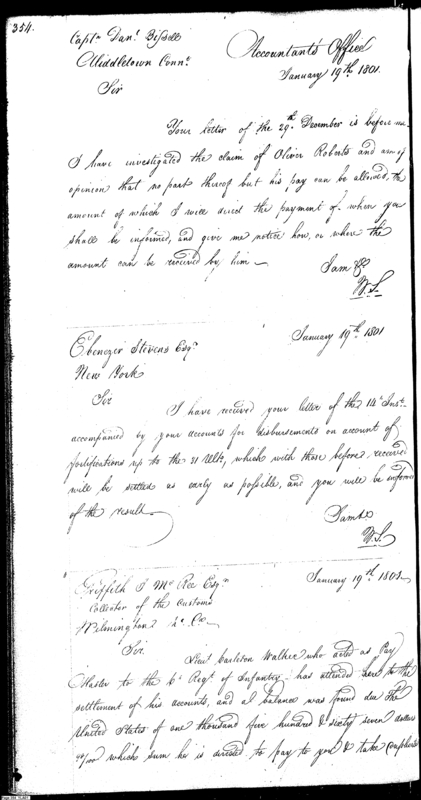 354.
Capt. Danl. Bissell
Accountants Office
Middletown Conne.
January 19th. 1801.
Sir
Your letter of the 29th. December is before me.
I have investigated the claim of Oliver Roberts and am of
opinion that no part thereof but his pay can be allowed, the
amount of which I will direct the payment of where you
shall be informed, and give me notice how, or where the
amount can be received by him.
I am &c
W. S.
January 19th. 1801
Ebenezer Stevens Esqr.
New York
Sir
I have received your letter of the 14th Inst.
accompanied by your accounts for disbursements on account of
fortifications up to the 31 Ulto, which with those before received
will be settled as early as possible, and you will be informed
of the result.
I am &c
W. S.
Griffith J McRee Esqr.
January 19th. 1801.
Collector of the Customs
Wilmington No. Ca.
Sir.
Lieut Carleton Walker who acted as Pay
Master to the 6th Regt. of Infantry has attended here to the
settlement of his accounts, and a balance was found due The
United States of one thousand five hundred & sixty seven dollars
/100 which sum he is directed to pay to you & take